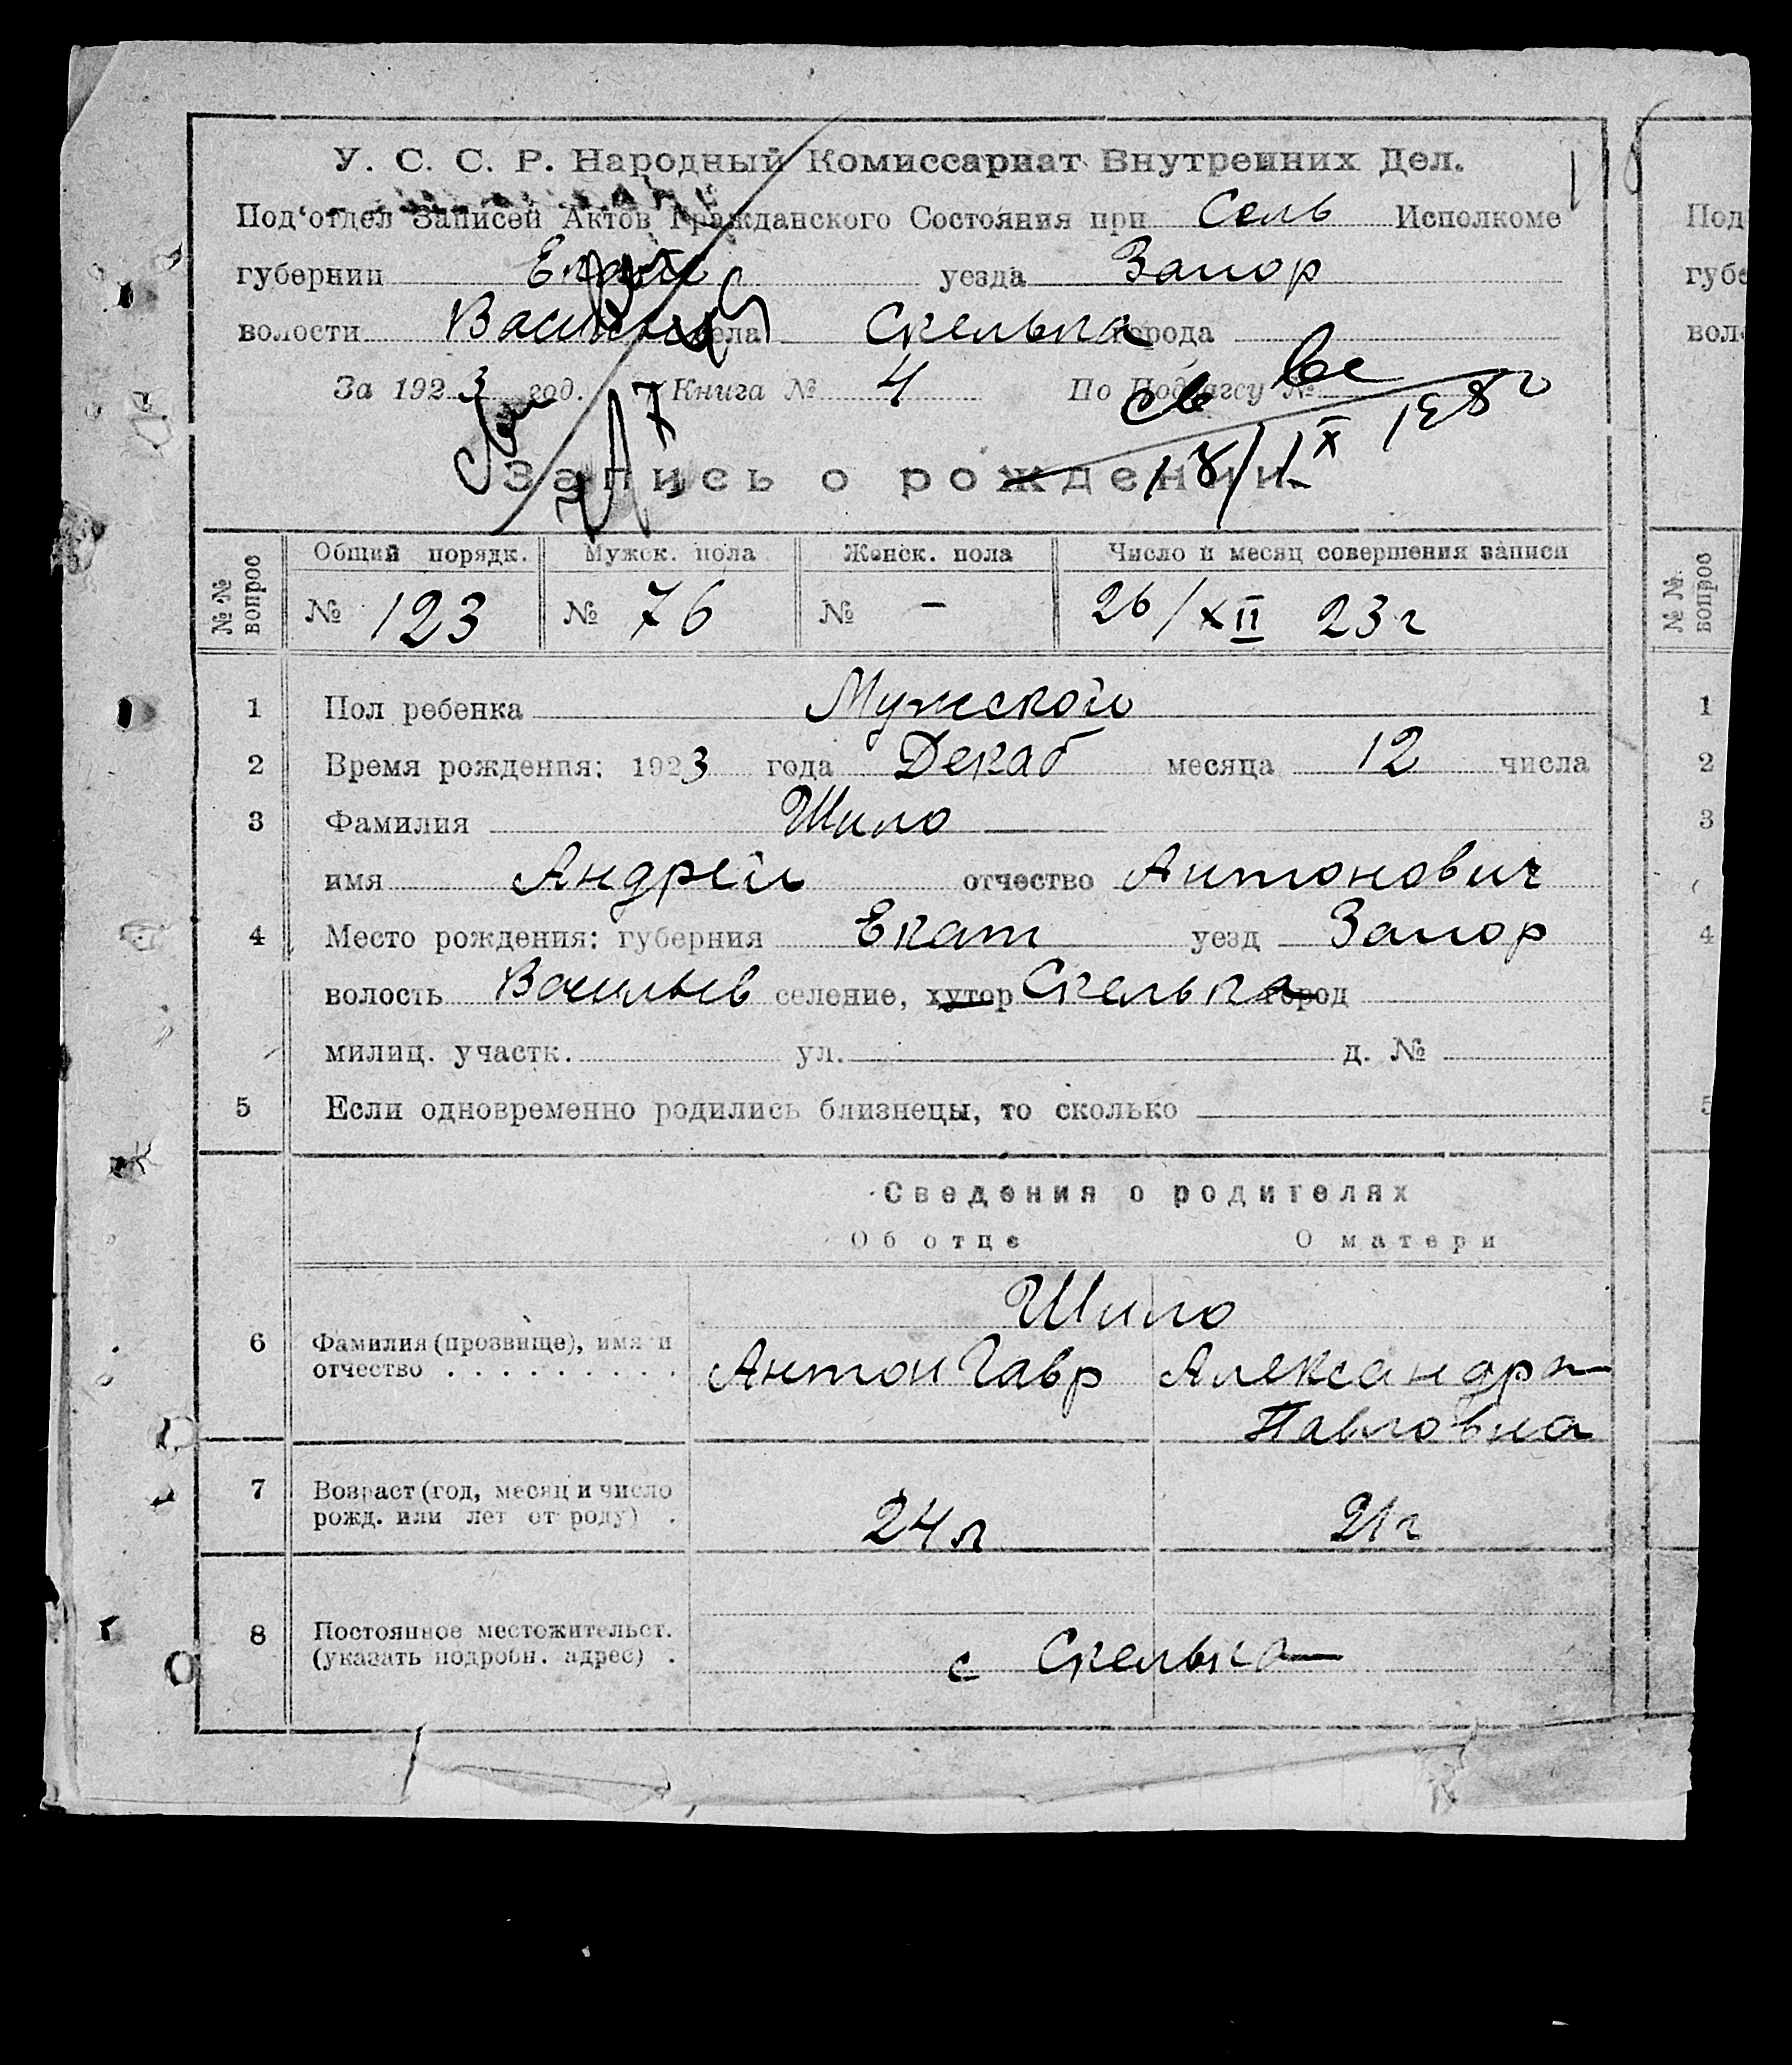 У. С. С. Р. Народный Комиссариат Внутренних Дел.
Под‘отдел Записей Актов Гражданского Состояния при Сель Исполкоме
губернии Екат уезда Запор
волости Васильев села Скелька города
За 1923 год. Книга № 4 По Подзагсу №
18/IX
Запись о рождении
№ № вопрос
Общий порядк. Мужск. пола Женск. пола Число и месяц совершения записи
№ 123 № 76 № – 26/XII 23 г
1 Пол ребенка Мужской
2 Время рождения: 1923 года Декаб месяца 12 числа
3 Фамилия Шило
имя Андрей отчество Антонович
4 Место рождения: губерния Екат уезд Запор
волость Васильев селение, хутор Скелька город
милиц. участк. ул. д. №
5 Если одновременно родились близнецы, то сколько
Сведения о родителях
Об отце О матери
Шило
6 Фамилия (прозвище), имя и
отчество . . . . . . . . . Антон Гавр Александра
Павловна
7 Возраст (год, месяц и число
рожд. или лет от роду) . 24 л 21 г
8 Постоянное местожительст.
(указать подробн. адрес) . с Скелька
Под
губе
воло
№ №. вопрос
1
2
3
4
5